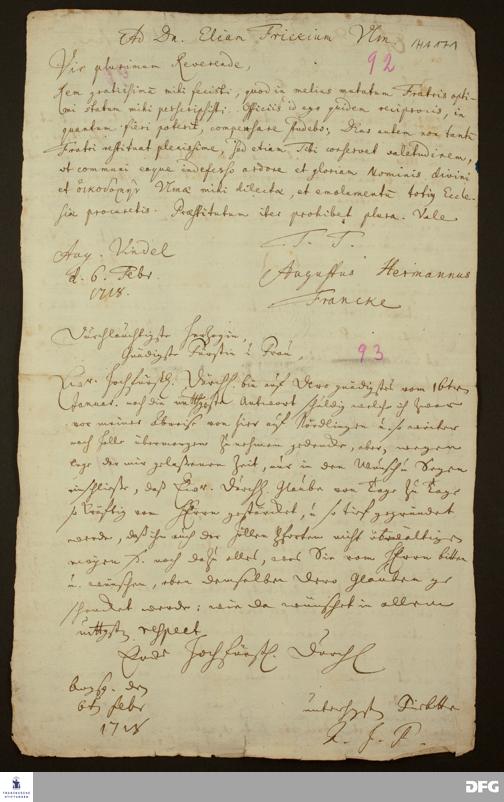 Ad Dn. Eliam Frickium Ulm.
92
Vir plurimum Reverende,
Rem gratissimam mihi fecisti, quod in melius mutatum Fratris opti-
mi statum mihi perscripsisti. Officiis id ego quidem reciprocis, in
quantum fieri poterit, compensare studebo; Deus autem non tantum
Fratri restituat plenissime, sed etiam Tibi conservet valetudinem,
ut communi eaque indefesso ardore et gloriam Nominis divini
et οἰκοδομὴν Ulmae mihi dilectae, et emolumentum totius Eccle-
siae procuretis. Praestitutum iter prohibet plura. Vale
Aug. Vindel
d. 6. Febr.
1718.
T. T.
Augustus Hermannus
Francke
Durchlauchtigste Herzogin,
Gnädigste Fürstin u. Frau,
93
Ewr. Hochfürstl. Durchl. bin auf Dero gnädigstes vom 16ten
Januar. noch die Antwort schuldig welche ich zwar
vor meiner Abreise von hier auf Nördlingen
nach Halle übermorgen zu nehmen gedencke, aber, wegen
der mir gelassenen Zeit, nur in den Wunsch u. Segen
daß Ewr. Durchl. Glaube von Tage zu Tage
so kräftig vom Herrn gestärcket, u. so tief gegründet
werde, daß ihn auch der Höllen Pforten nicht überwältigen
mögen noch dazu alles, was Sie vom Herrn bitten
u. wünschen, eben demselben Dero Glauben ge-
schencket werde; wie da wünschet in allem
respect
Ewr Hochfürstl. Durchl
den
6t Febr
1718
A. H. F.
TRANCKESCHE STIFTUNGEN
DFG